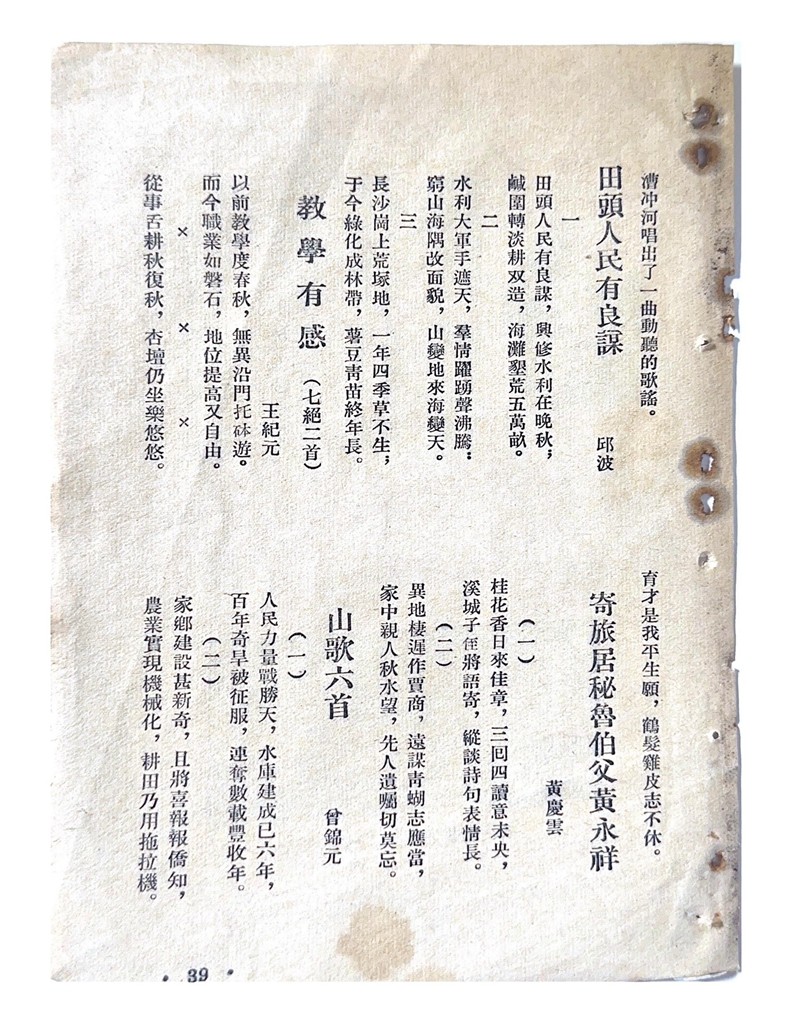 漕冲河唱出了一曲動聽的歌謠。
田頭人民有良謀
邱波
一
田頭人民有良謀，興修水利在晚秋；
鹹圍轉淡耕双造，海灘墾荒五萬畝。
二
水利大軍手遮天，羣情躍踴聲沸騰；
窮山海隅改面貌，山變地來海變天。
三
長沙崗上荒塚地，一年四季草不生；
于今綠化成林帶，薯豆靑苗終年長。
教學有感（七絕二首）
王紀元
以前教學度春秋，無異沿門托砵遊。
而今職業如磐石，地位提高又自由。
× × ×
從事舌耕秋復秋，杏壇仍坐樂悠悠。
育才是我平生願，鶴髮雞皮志不休。
寄旅居秘魯伯父黃永祥
黃慶雲
（一）
桂花香日來佳章，三囘四讀意未央，
溪城子侄將語寄，縱談詩句表情長。
（二）
異地棲遲作賈商，遠謀靑蚨志應當，
家中親人秋水望，先人遺囑切莫忘。
山歌六首
曾錦元
（一）
人民力量戰勝天，水庫建成已六年，
百年奇旱被征服，連奪數載豐收年。
（二）
家鄉建設甚新奇，且將喜報報僑知，
農業實現機械化，耕田乃用拖拉機。
· 39 ·